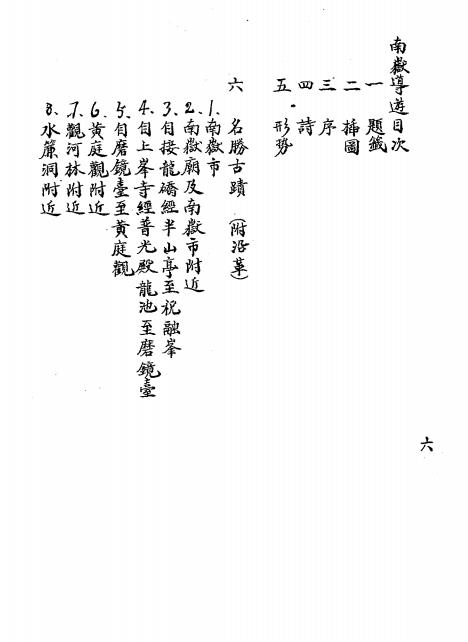 南嶽導遊目次
一　題籤
二　揷圖
三　序
四　詩
五．形勢
六　名勝古蹟（附沿革）
1.南嶽市
2.南嶽廟及南嶽市附近
3.自接龍礄經半山亭至祝融峯
4.自上峯寺經普光殿龍池至磨鏡臺
5.自磨鏡臺至黃庭觀
6.黃庭觀附近
7.觀河林附近
8.水簾洞附近
六